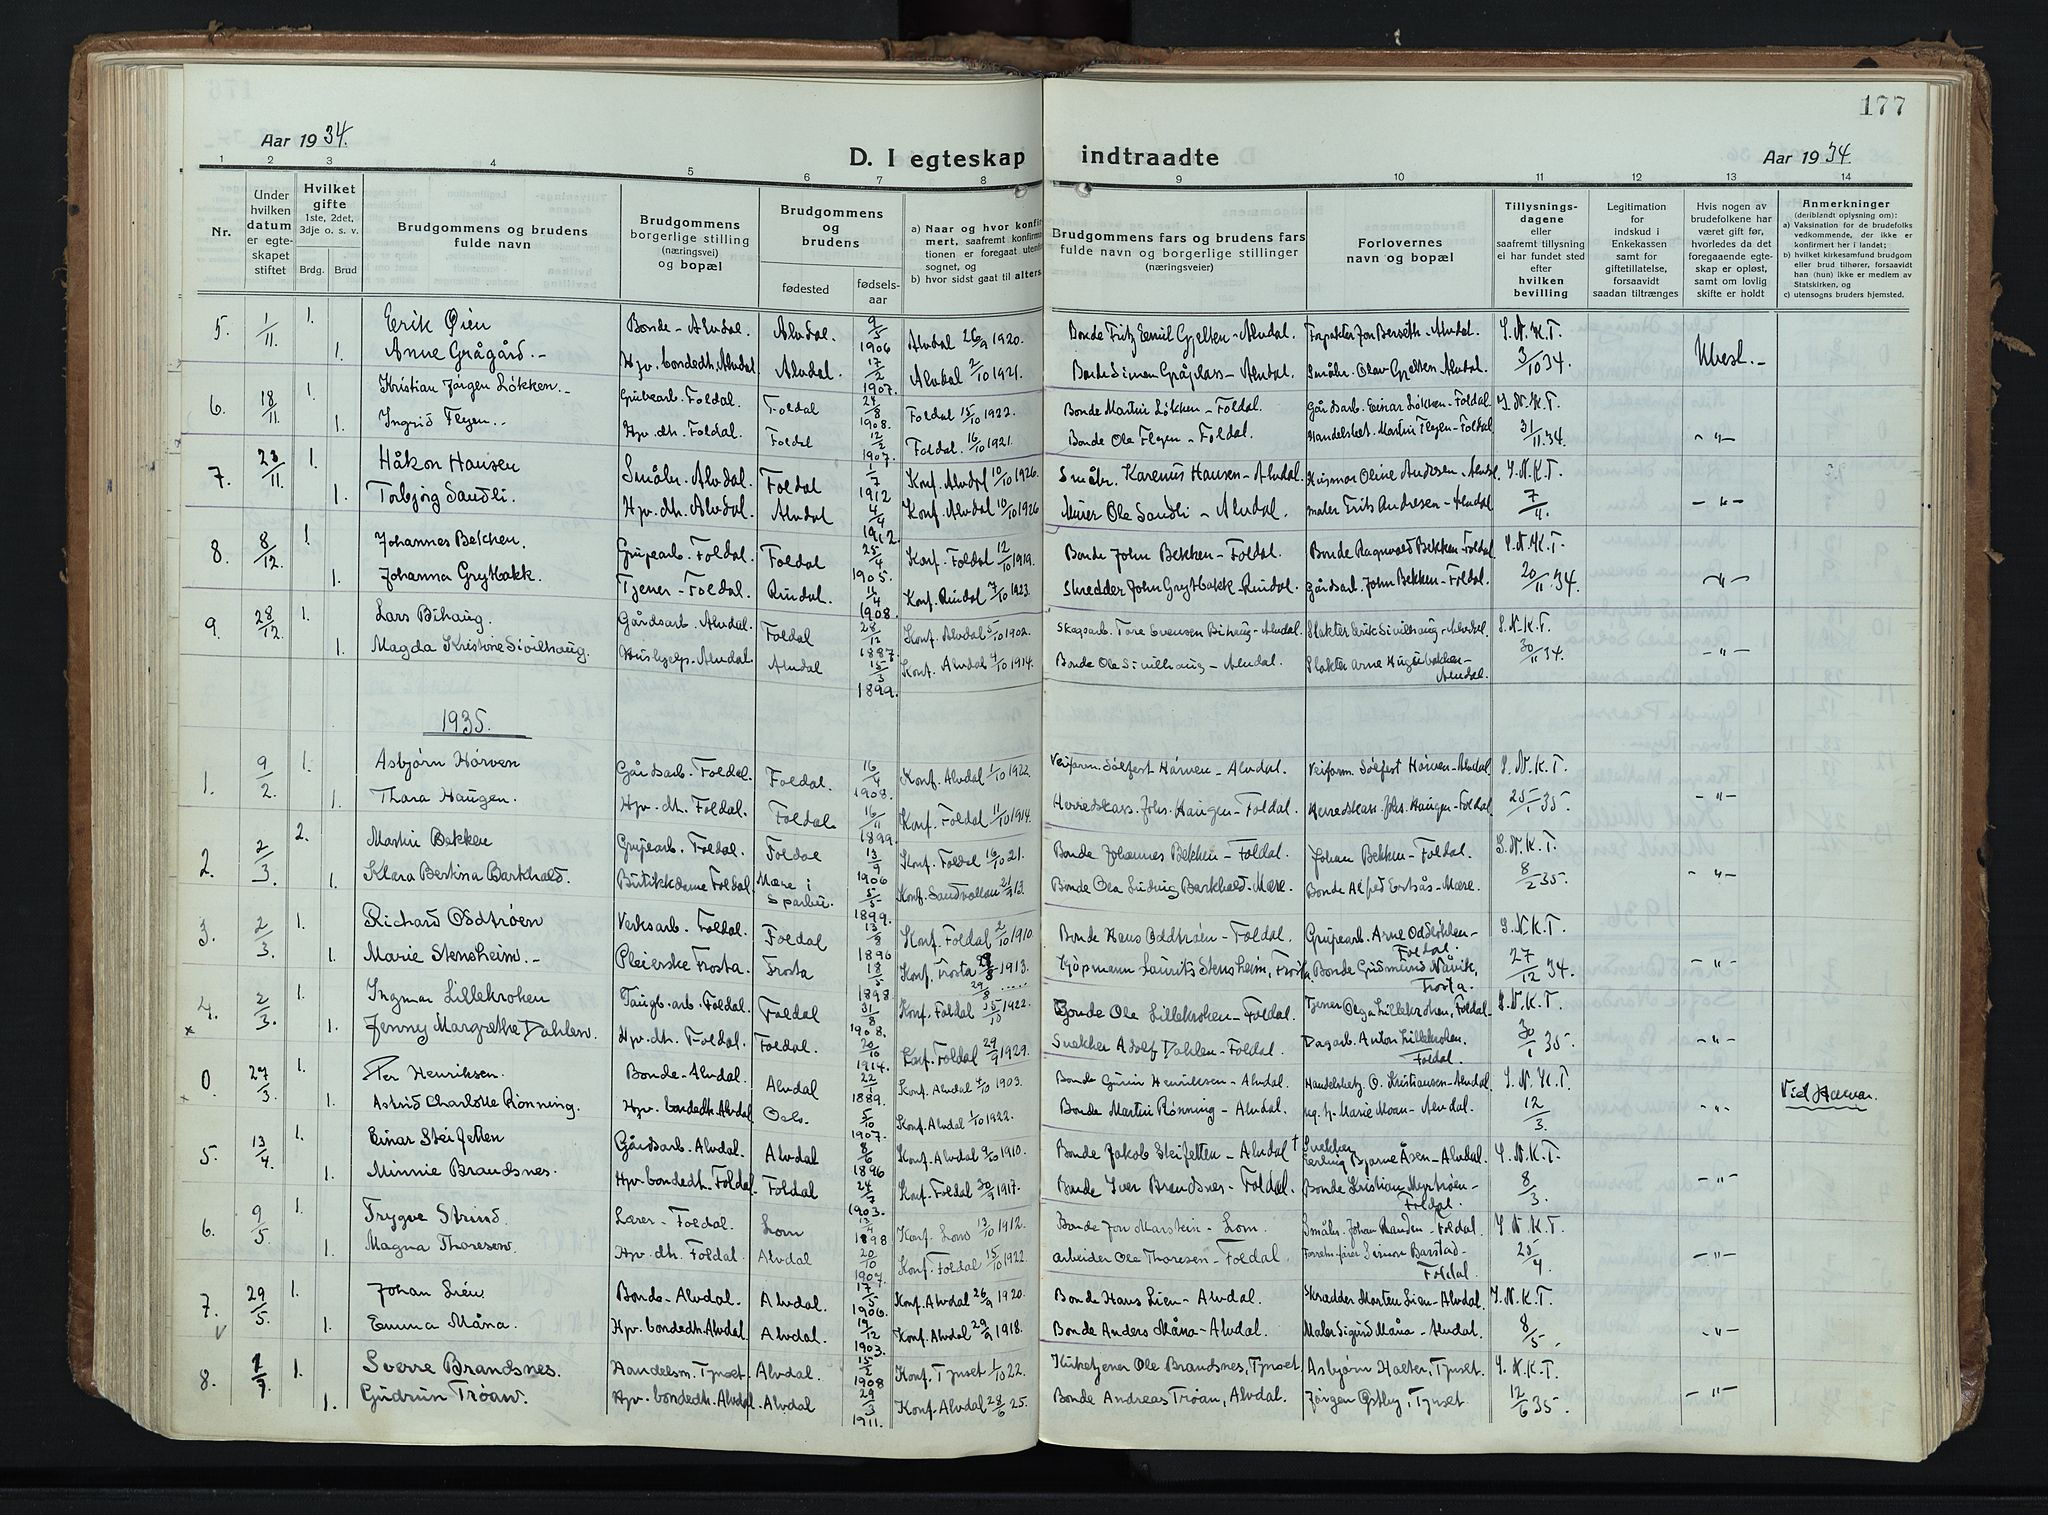 177
Aar 1934.
D. I egteskap indtraadte
Aar 1934.
1 2 3 4 5 6 7 8 9 10 11 12 13 14
Nr.
Under hvilken datum er egteskapet stiftet
Hvilket gifte 1ste, 2det, 3dje o. s. v.
Brdg. Brud
Brudgommens og brudens fulde navn
Brudgommens borgerlige stilling (næringsvei) og bopæl
Brudgommens og brudens
fødested
fødselsaar
a) Naar og hvor konfirmert, saafremt konfirmationen er foregaat utenfor sognet, og
b) hvor sidst gaat til alters
Brudgommens fars og brudens fars fulde navn og borgerlige stillinger (næringsveier)
Forlovernes navn og bopæl
Tillysningsdagene eller saafremt tillysning ei har fundet sted efter hvilken bevilling
Legitimation for indskud i Enkekassen samt for giftetillatelse, forsaavidt saadan tiltrænges
Hvis nogen av brudefolkene har været gift før, hvorledes da det foregaaende egteskap er opløst, samt om lovlig skifte er holdt
Anmerkninger (deriblandt oplysning om):
a) Vaksination for de brudefolks vedkommende, der ikke er konfirmert her i landet;
b) hvilket kirkesamfund brudgom eller brud tilhører, forsaavidt han (hun) ikke er medlem av Statskirken, og
c) utensogns bruders hjemsted.
5. 1/11 1. Erik Øien Bonde - Alvdal. Alvdal. 9/5 1906 Alvdal 26/9 1920. Bonde Fritz Emil Gjelten - Alvdal. Jon Berseth - Alvdal. S.N.K.T.
1. Anne Grågård. - Hjv. bondedt. Alvdal Alvdal. 17/2 1907. Alvdal 2/10 1921. Bonde Simen Gråplass - Alvdal. Småbr. Olav Gjelten - Alvdal. 3/10 34. Ubesl. -
6. 18/11 1. Kristian Jørgen Løkken. - Grubearb. Foldal. Foldal 24/8 1908. Foldal 15/10 1922. Bonde Martin Løkken - Foldal. Gårdsarb. Einar Løkken - Foldal S.N.K.T.
1. Ingrid Flyen. - Hjv. dt. Foldal. Foldal 12/2 1907. Foldal 16/10 1921. Bonde Ola Flyen - Foldal. Handelsbet. Martin Flyen - Foldal 31/11.34. - " -
7. 23/11 1. Håkon Hansen Småbr. Alvdal. Foldal 1/7 1912 Konf. Alvdal 10/10 1926. Småbr. Karenus Hansen - Alvdal. Husmor Oline Andresen - Alvdal. S.N.K.T.
1. Torbjørg Sandli. Hjv. dt. Alvdal. Alvdal 4/4 1912. Konf. Alvdal 10/10 1926 Murer Ole Sandli - Alvdal. maler Erits Andresen - Alvdal 7/11. - " -
8. 8/12 1. Johannes Bekken. Grubearb. Foldal. Foldal 25/4 1905. Konf. Foldal 12/10 1919. Bonde John Bekken - Foldal. Bonde Ragnvald Bekken - Foldal S.N.K.T.
1. Johanna Grytbakk. Tjener - Foldal. Rindal. 11/4 1908. Konf. Rindal 7/10 1923. Skredder John Grytbakk - Rindal. Gårdsarb. John Bekken - Foldal. 20/11.34. - " -
9. 28/12. 1. Lars Bihaug. Gårdsarb. Alvdal. Foldal 28/12 1887. Konf. Alvdal 5/10 1902. Skogsarb. Tore Evensen Bihaug - Alvdal. Slakter Erik Sivilhaug - Alvdal. S.N.K.T.
1. Magda Kristine Sivilhaug. Hushjelp. Alvdal. Alvdal 15/3 1899. Konf. Alvdal 4/10 1914. Bonde Ola Sivilhaug - Alvdal. Slakter Arne - Alvdal. 30/11 34. - " -
1935.
1. 9/2 1. Asbjørn Horven Gårdsarb. Foldal. Foldal. 16/4 1908. Konf. Alvdal 1/10 1922. Veiform. Sølfest Horven - Alvdal. Veiform. Sølfest Horven - Alvdal. S.N.K.T.
1. Thora Haugen. Hjv. dt. Foldal. Foldal. 16/11 1899. Konf. Foldal 11/10 1914. Herredskass. Johs. Haugen - Foldal. Herredskass. Johs. Haugen - Foldal 25/1 35. - " -
2. 2/3. 2. Martin Bekken Grubearb. Foldal. Foldal 13/9 1906 Konf. Foldal 16/10 21. Bonde Johannes Bekken - Foldal. Johan Bekken - Foldal. S.N.K.T.
1. Klara Bertina Barkhald. Butikkdame Foldal Mære i Sparbu. 5/5 1899. Konf. Sandvollan 21/9 13. Bonde Ola Ludvig Barkhald - Mære. Bonde Alfred - Mære. 8/2 35. - " -
3. 2/3. 1. Richard Oddtrøen Verksarb. Foldal. Foldal 13/8 1896 Konf. Foldal 2/10 1910. Bonde Hans Oddtrøen - Foldal. Grubearb. Arne Oddløkken - Foldal. S.N.K.T.
1. Marie Stensheim. - Pleierske Frosta. Frosta 18/5 1898. Konf. Frosta 1913. Kjøpmann Laurits Stensheim, Frosta. Bonde Gudmund Nåvik, Frosta. 27/12 34. - " -
4. 2/3. 1. Ingmar Lillekroken Taugb.arb. Foldal. Foldal 31/8 1908. Konf. Foldal 15/10 1922. Bonde Ola Lillekroken - Foldal. Tjener Olga Lillekroken, Foldal - S.N.K.T.
x 1. Jenny Margrethe Dahlen. Hjv. dt. Foldal. Foldal. 20/10 1914. Konf. Foldal 29/9 1929. Snekker Adolf Dahlen - Foldal. Dagarb. Anton Lillekroken, Foldal. 30/1 35. - " -
0. 27/3 1. Per Henriksen. Bonde - Alvdal. Alvdal 22/1 1889. Konf. Alvdal 4/10 1903. Bonde Henriksen - Alvdal. Handelsbetj. O. Kristiansen - Alvdal S.N.K.T. Viet Hamar.
x 1. Astrid Charlotte Rønning. Hjv. bondedt. Alvdal Oslo. 5/10 1907. Konf. Alvdal 1/10 1922. Bonde Martin Rønning - Alvdal. ug. p. Marie Moan - Alvdal. 12/3. - " -
5. 13/4 1. Einar Steifetten Gårdsarb. Alvdal. Alvdal 8/6 1896 Konf. Alvdal 9/10 1910. Bonde Jakob Steifetten - Alvdal † Snekker Erling Bjarne Åsen - Alvdal. S.N.K.T.
1. Minnie Brandsnes. Hjv. bondedt. Foldal. Foldal 24/7 1903. Konf. Foldal 30/9 1917. Bonde Iver Brandsnes - Foldal. Bonde Kristian Myrtrøen - Foldal. 8/3. - " -
6. 9/5 1. Trygve Strind. Lærer - Foldal. Lom 13/4 1898 Konf. Lom 13/10 1912. Bonde Jon Marstein - Lom. Småbr. Johan Randen - Foldal S.N.K.T.
1. Magna Thoresen. Hjv. dt. Foldal. Alvdal 20/10 1907. Konf. Foldal 15/10 1922. arbeider Ole Thoresen - Foldal. Forretn.fører Simon Barstad - Foldal. 25/4. - " -
7. 29/5 1. Johan Lien Bonde - Alvdal. Alvdal. 17/5 1906. Konf. Alvdal 26/9 1920. Bonde Hans Lien - Alvdal. Skrædder Morten Lien - Alvdal. S.N.K.T.
v 1. Emma Måna. Hjv. bondedt. Alvdal Alvdal. 19/12 1903. Konf. Alvdal 29/9 1918. Bonde Anders Måna - Alvdal. Maler Sigurd Måna - Alvdal. 8/5. - " -
8. 7/7 1. Sverre Brandsnes. Handelsm. Tynset. Alvdal. 15/2 1908 Konf. Tynset 1/10 22. Kirketjener Ole Brandsnes, Tynset Asbjørn Haeter, Tynset. S.N.K.T.
1. Gudrun Trøan. Hjv. bondedt. Alvdal. Alvdal 29/3 1911. Konf. Alvdal 28/6 25. Bonde Andreas Trøan, Alvdal. Jørgen Østby, Tynset. 12/6 35. - " -